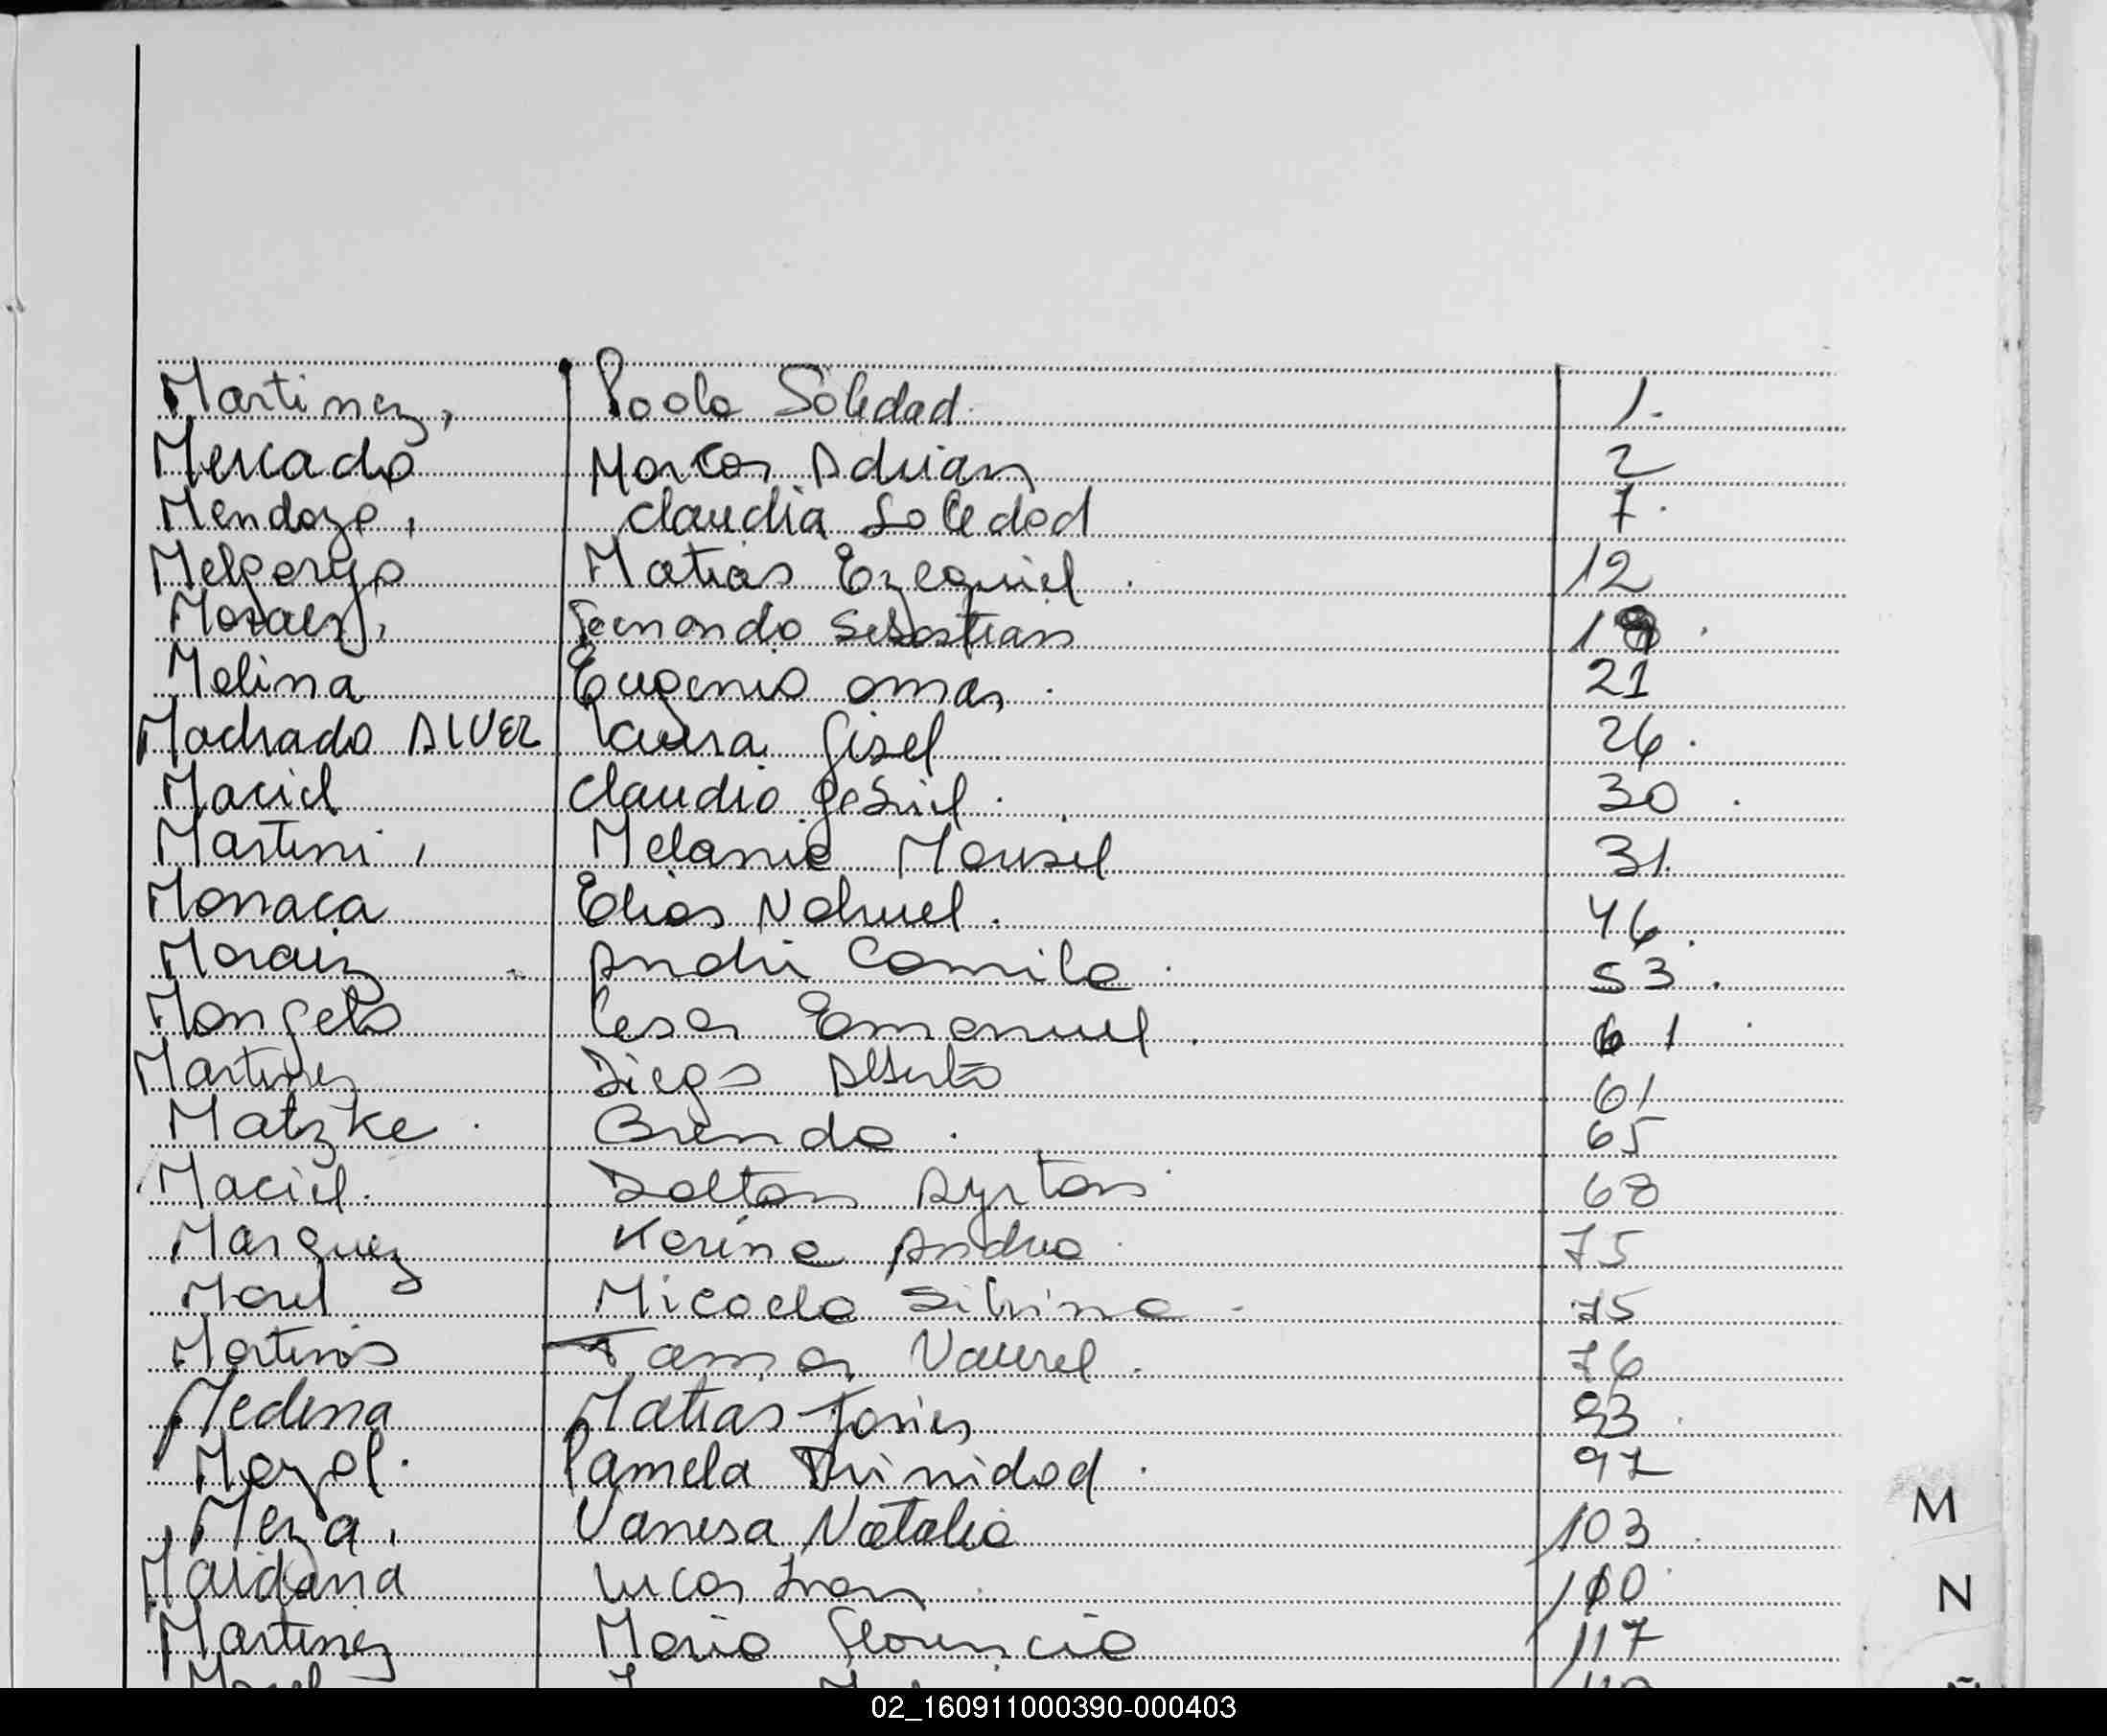 Martinez, Paola Soledad. 1.
Mercado Marcos Adrian 2
Mendoza, Claudia Soledad 7.
Melgarejo Matias Ezequiel. 12
Fernando Sebastian
Molina Eugenio Omar. 21
Machado ALVEZ Laura Gisel 26.
Maciel Claudio Gabriel. 30.
Martini, Melanie Marisel 31.
Monaca Elias Nahuel. 46.
Andrei Camila. 53.
Mongelo Cesar Emanuel. 61.
Martinez Diego Alberto 61
Matzke. Brenda. 65
Maciel. Dalton Ayrton 68
Marquez Karina Andrea. 75
Morel Micaela Silvina - 75
Martinis 76
Medina Matias Javier 93.
Pamela Trinidad. 97
Meza, Vanesa Natalia 103.
Maidana Lucas Ivan. 110.
Martinez Maria Florencia 117
M
N
02_160911000390-000403